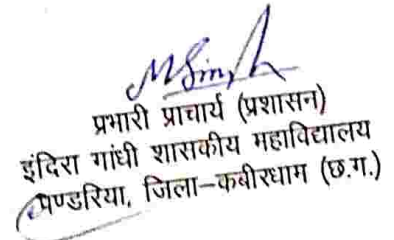 प्रभारी प्राचार्य (प्रशासन)
इंदिरा गांधी शासकीय महाविद्यालय
पण्डरिया, जिला-कबीरधाम (छ.ग.)